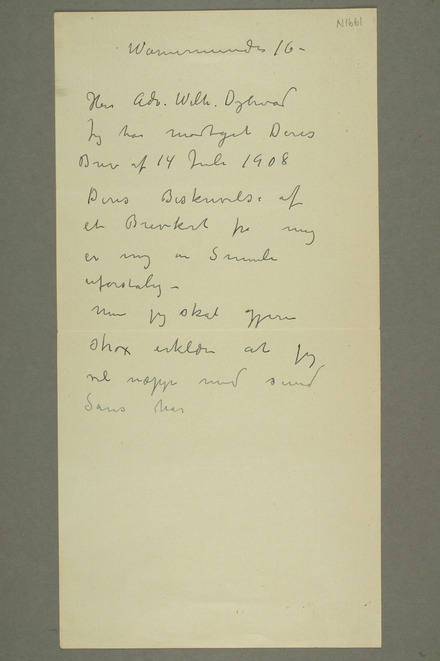 N1661
Warnemünde 16 –
Herr Adv. Wilh. Dybwad
Jeg har modtaget Deres
Brev af 14 Juli 1908
Deres Beskrivelse af
et Brevkort fra mig
er mig en Smule
uforstaalig –
Men jeg skal gjerne
strax erklære at jeg
vel næppe med sund
Sans har